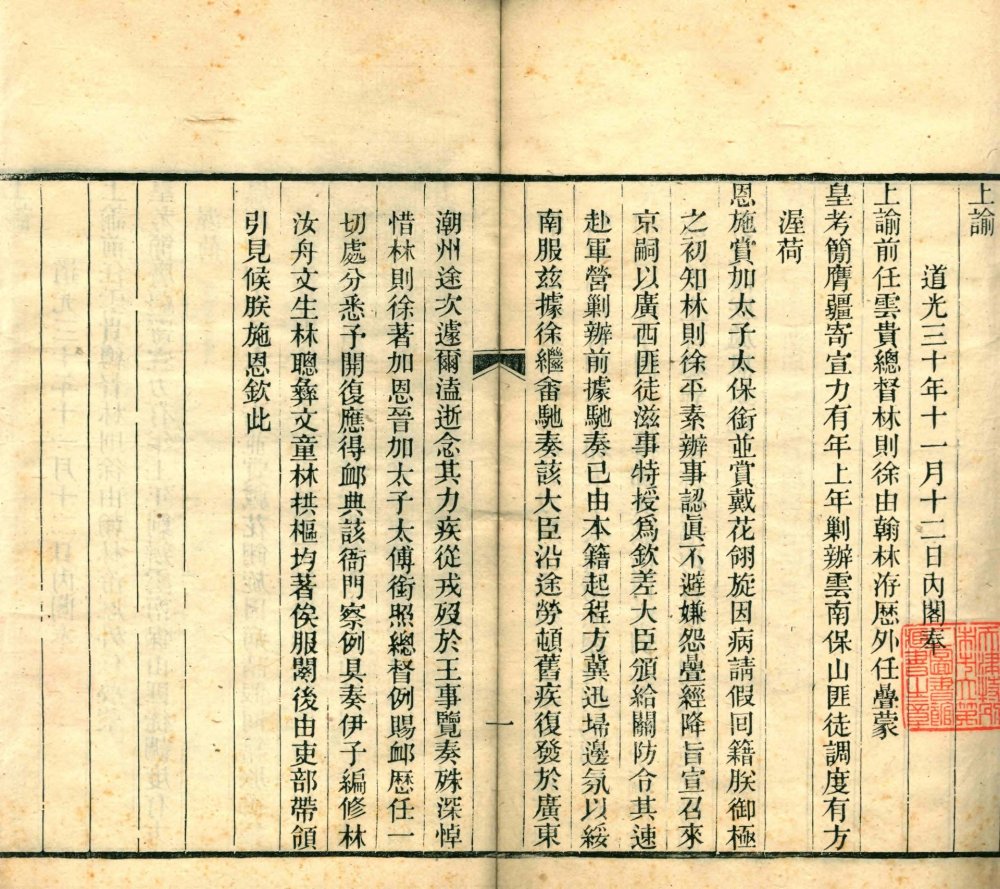 上諭
道光三十年十一月十二日內閣奉
上諭前任雲貴總督林則徐由翰林洊歷外任疊蒙
皇考簡膺疆寄宣力有年上年剿辦雲南保山匪徒調度有方
渥荷
恩施賞加太子太保銜並賞戴花翎旋因病請假回籍朕御極
之初知林則徐平素辦事認眞不避嫌怨疊經降旨宣召來
京嗣以廣西匪徒滋事特授爲欽差大臣頒給關防令其速
赴軍營剿辦前據馳奏已由本籍起程方冀迅埽邊氛以綏
南服茲據徐繼畬馳奏該大臣沿途勞頓舊疾復發於廣東
一
潮州途次遽爾溘逝念其力疾從戎歿於王事覽奏殊深悼
惜林則徐著加恩晉加太子太傅銜照總督例賜卹歷任一
切處分悉予開復應得卹典該衙門察例具奏伊子編修林
汝舟文生林聰彝文童林拱樞均著俟服闋後由吏部帶領
引見候朕施恩欽此